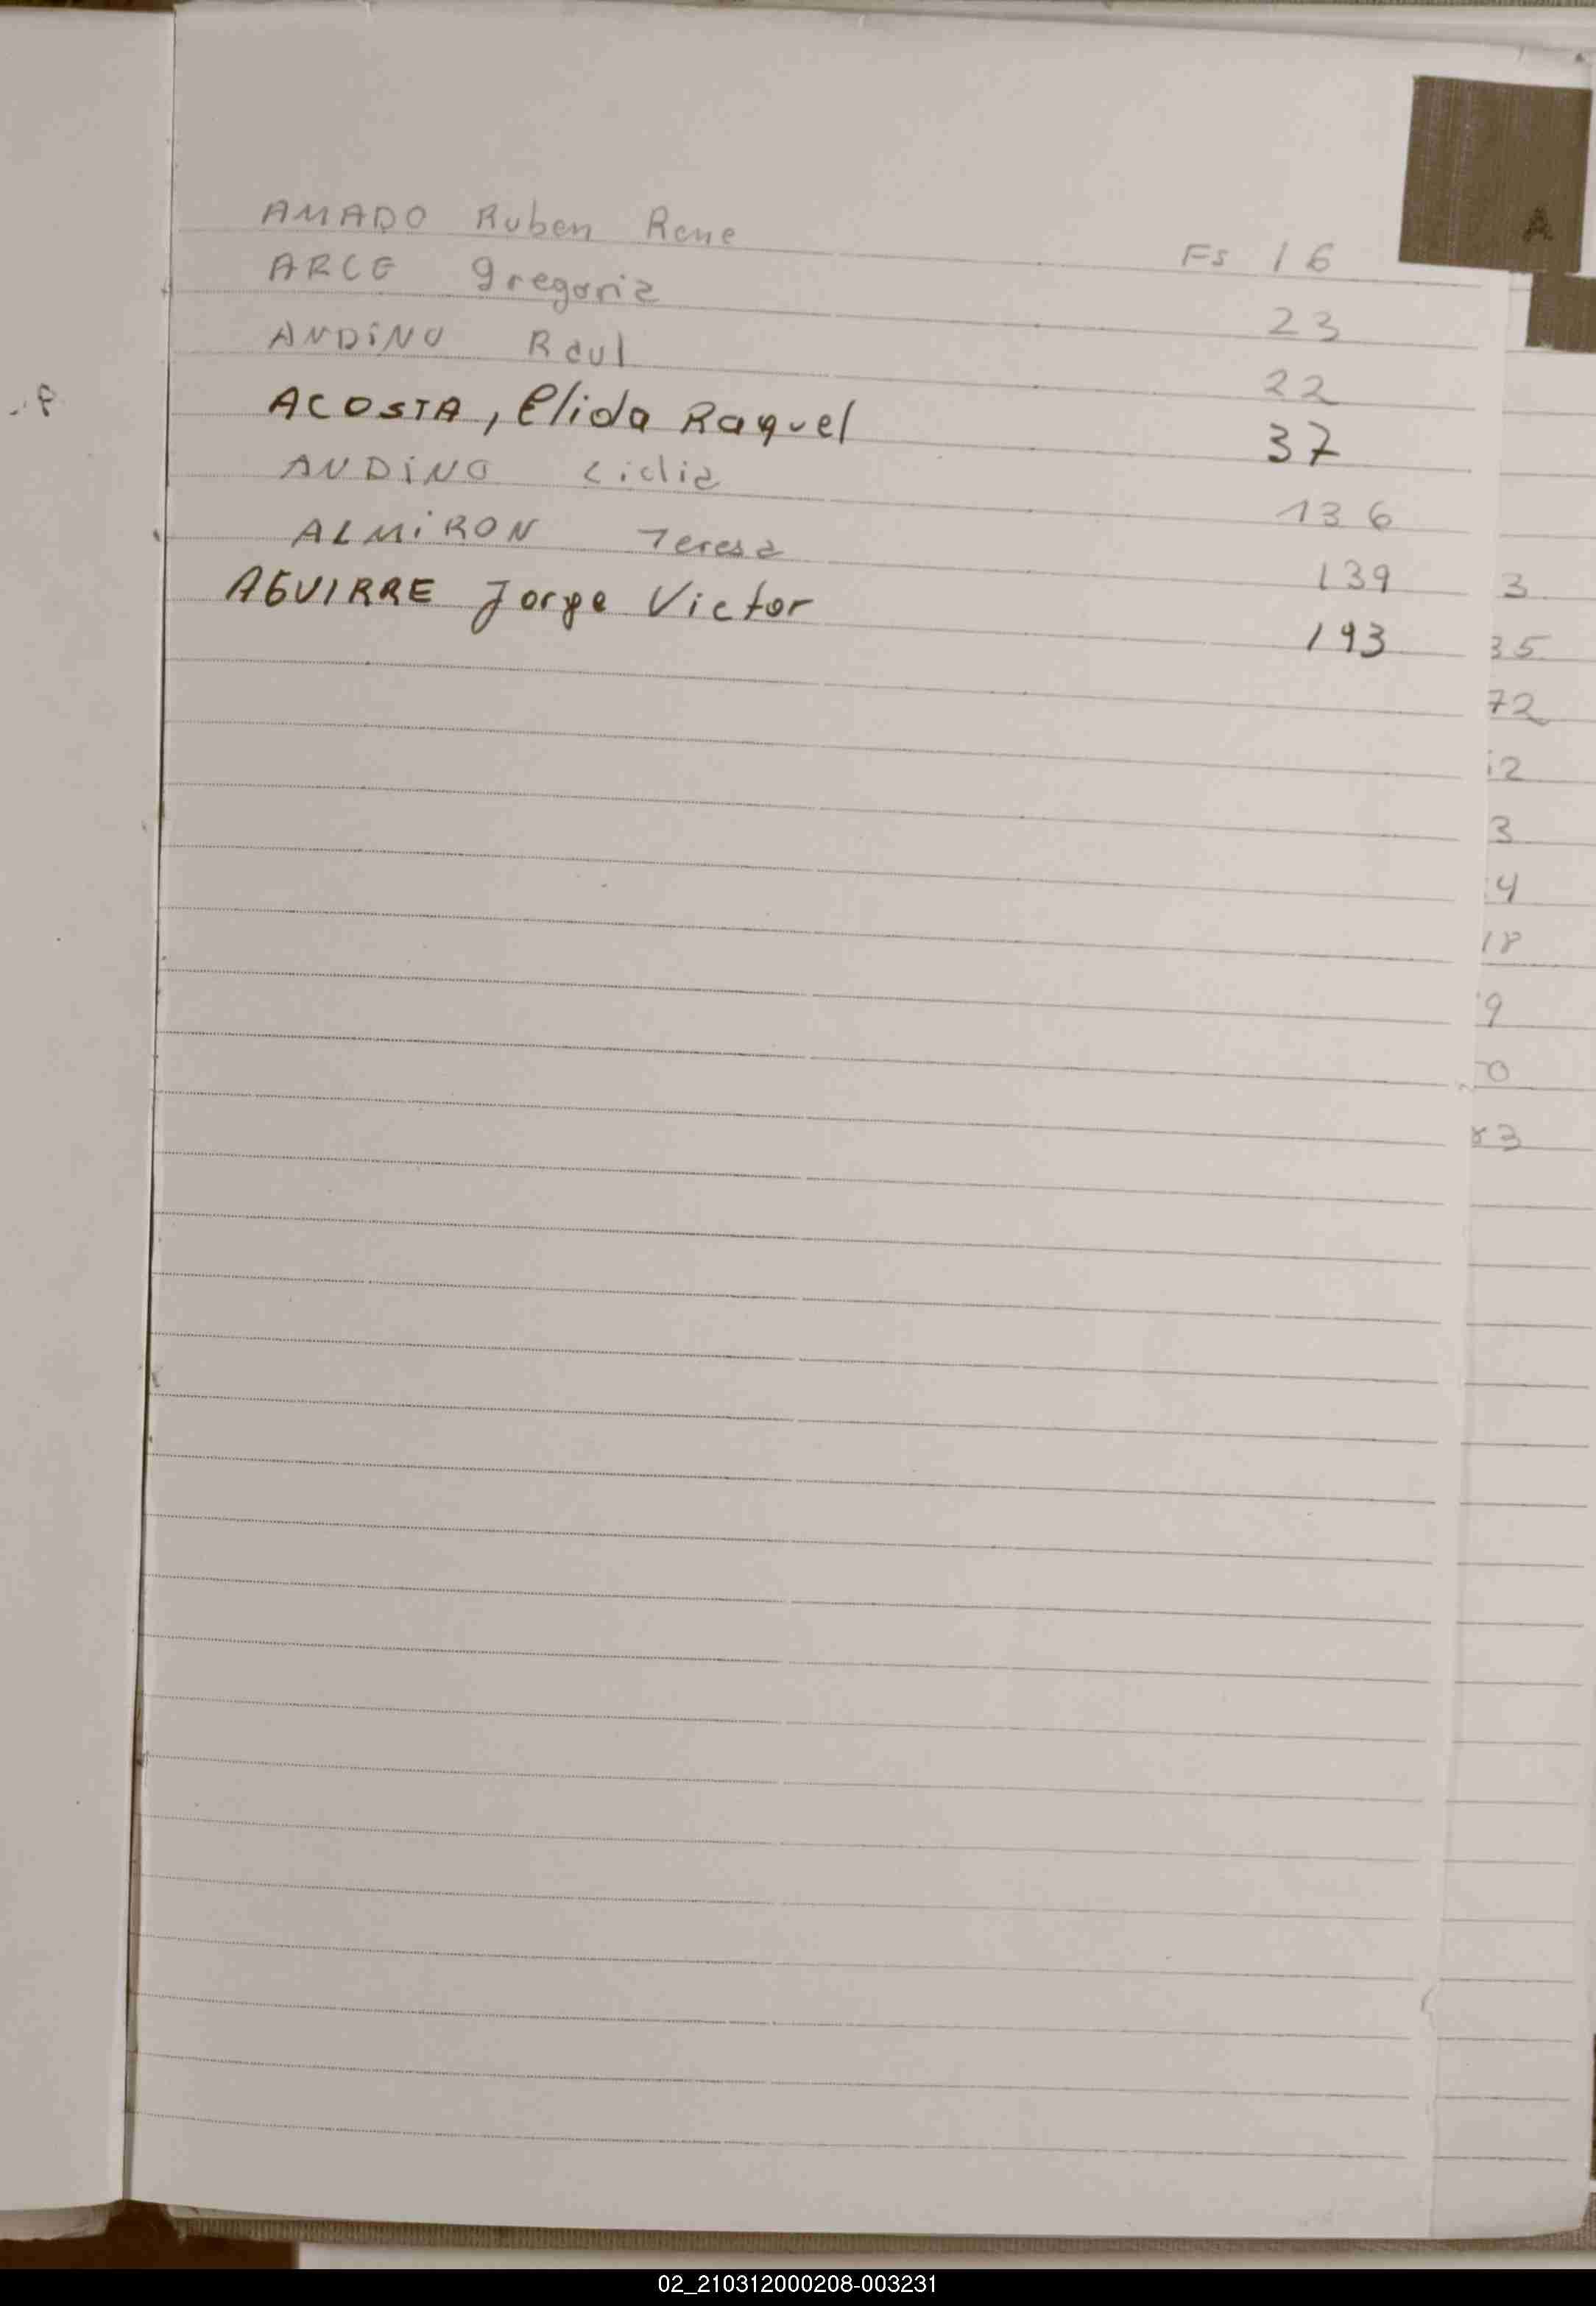 A
AMADO Ruben Rene Fs 16
ARCE Gregoria 23
ANDiNO Raul 22
ACOSTA, Elida Raquel 37
ANDiNO 136
ALMiRON Teresa 139
AGUIRRE Jorge Victor 193
3
35
72
12
3
4
18
9
0
83
02_210312000208-003231